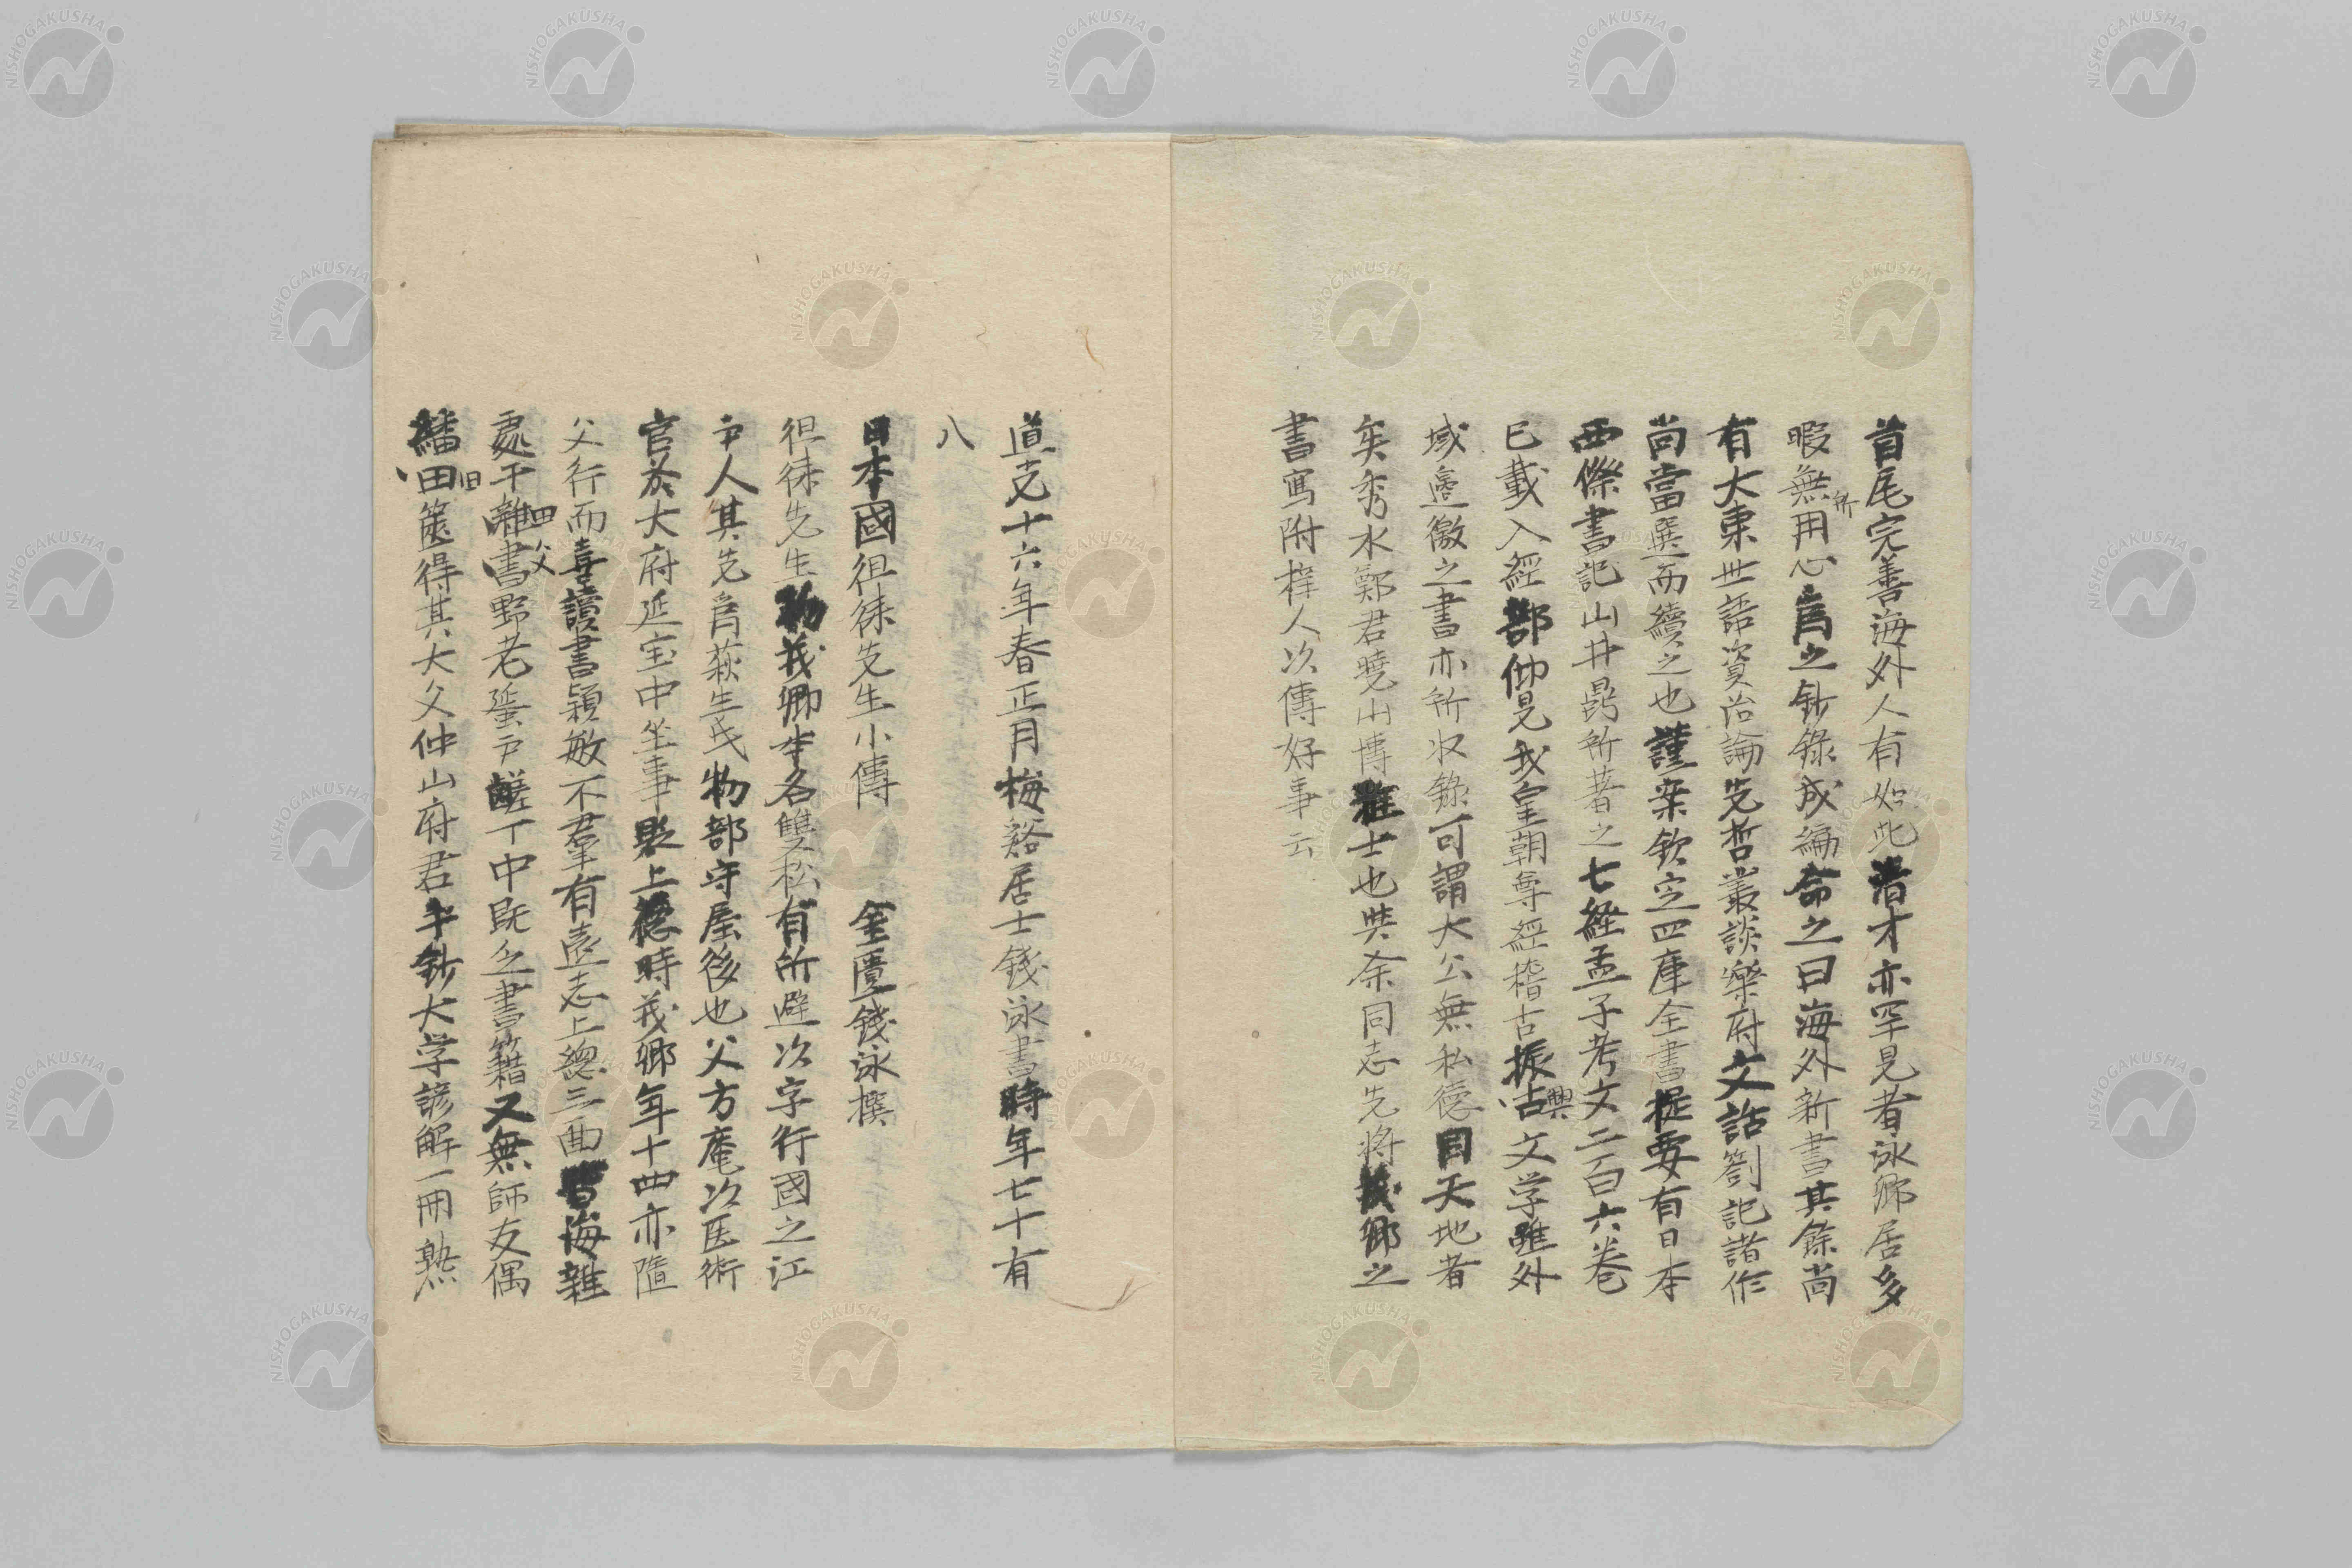 首尾完善海外人有如此清才亦罕見者泳鄉居多
暇無所用心為之鈔錄成編命之曰海外新書其餘尚
有大東世語資治論先哲叢談樂府文話劄記諸作
尚當選而續之也謹案欽定四庫全書提要有日本
西條書記山井鼎所著之七経孟子考文二百六巻
已載入經部仰見我皇朝尊經稽古振興文学雖外
域邊徼之書亦所収錄可謂大公無私德同天地者
矣秀水鄭君曉山博雅士也與余同志先將茂卿之
書寫附梓人以傳好事云
道光十六年春正月梅谿居士錢泳書時年七十有
八
日本國徂徠先生小傳 金匱錢泳撰
徂徠先生物茂卿本名雙松有所避以字行國之江
戸人其先為荻生氏物部守屋後也父方庵以医術
官於大府延宝中坐事貶上總時茂卿年十四亦隨
父行而喜讀書穎敏不羣有遠志上總三面皆海雜
處于田父野老蜑戸醝丁中既乏書籍又無師友偶
繙旧篋得其大父仲山府君手鈔大学諺解一冊熟
NISHOGAKUSHA